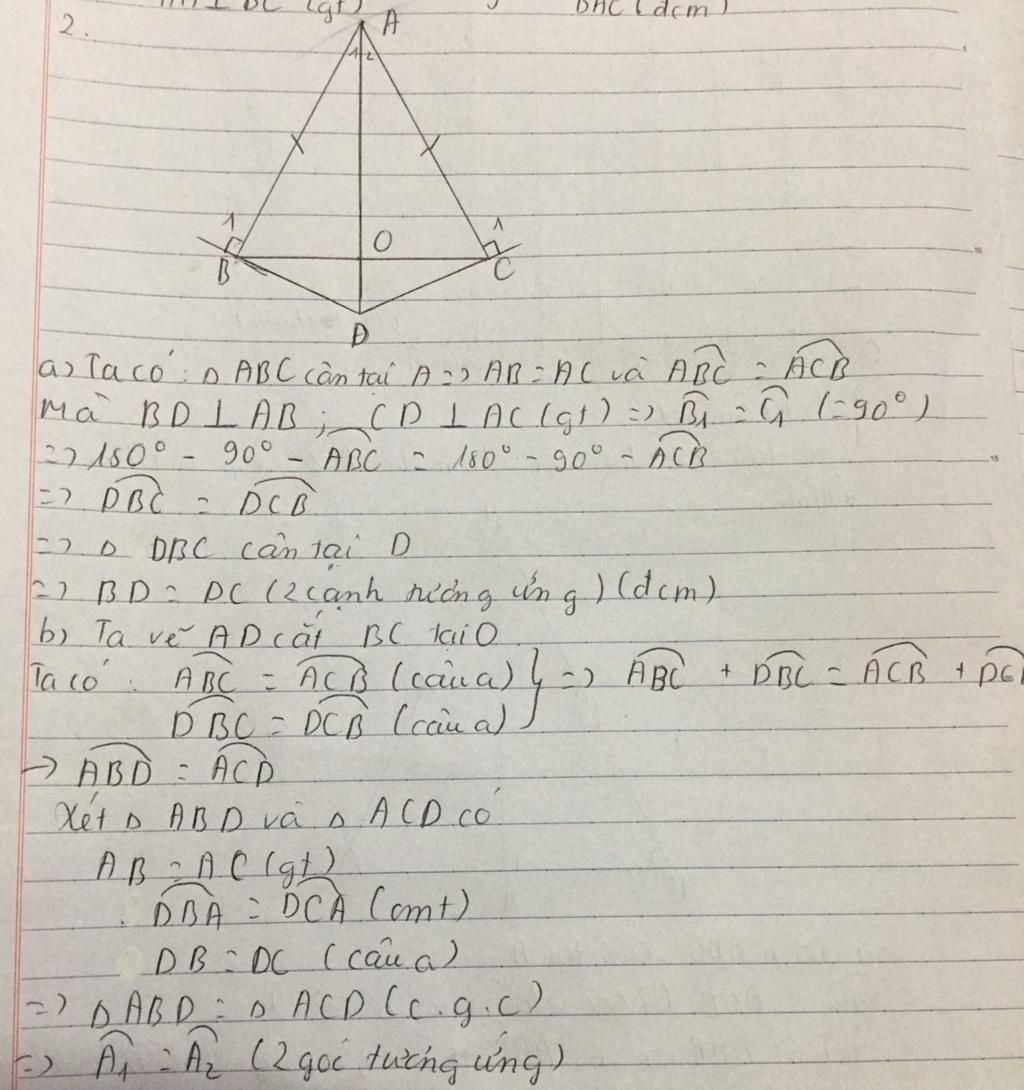 BC (gt) DAC (đcm)
2.
A
1 2
1 1
O
B C
D
a) Ta có : Δ ABC cân tại A => AB = AC và ABC = ACB
Mà BD ⊥ AB ; CD ⊥ AC (gt) => B1 = C1 (=90°)
=> 180° - 90° - ABC = 180° - 90° - ACB
=> DBC = DCB
=> Δ DBC cân tại D
=> BD = DC (2 cạnh tương ứng) (đcm)
b) Ta vẽ AD cắt BC tại O
Ta có : ABC = ACB (câu a) } => ABC + DBC = ACB + DCB
DBC = DCB (câu a)
-> ABD = ACD
Xét Δ ABD và Δ ACD có
AB = AC (gt)
DBA = DCA (cmt)
DB = DC (câu a)
=> Δ ABD = Δ ACD (c.g.c)
=> A1 = A2 (2 góc tương ứng)